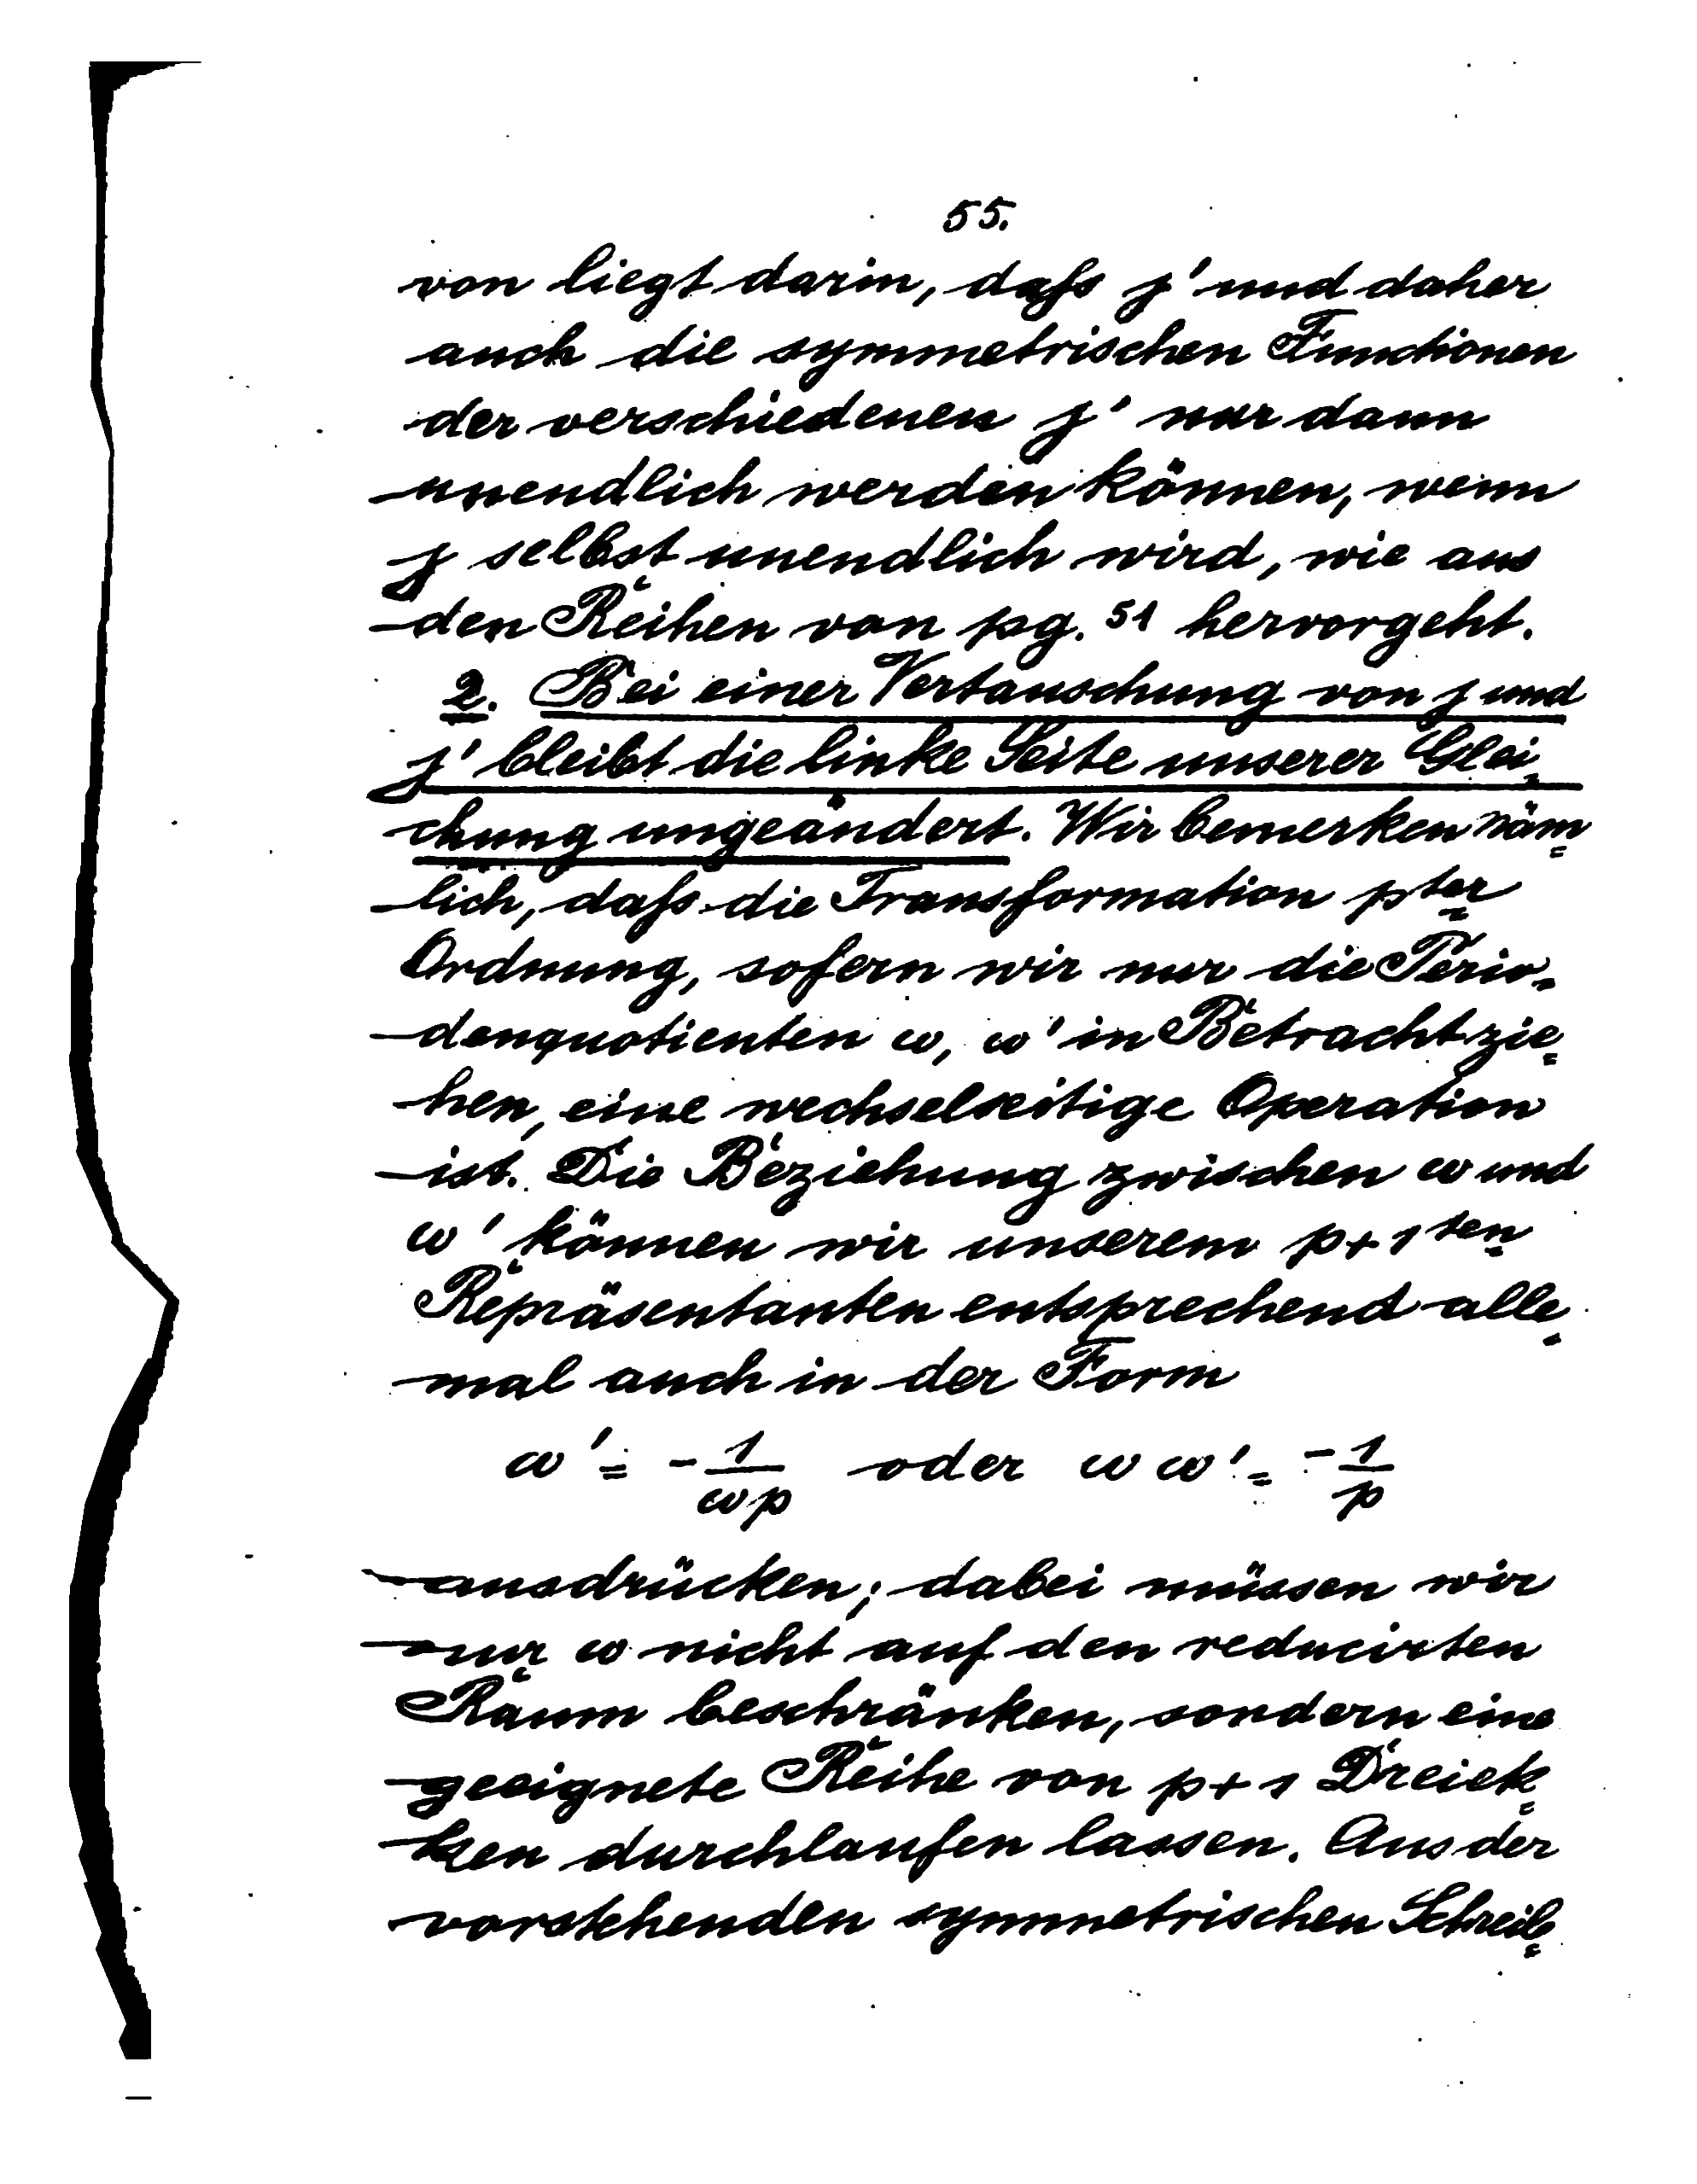 55.
von liegt darin, dafs j' und daher
auch die symmetrischen Functionen
der verschiedenen j' nur dann
unendlich werden können, wenn
j selbst unendlich wird, wie aus
den Reihen von pg. 51 hervorgeht.
2. Bei einer Vertauschung von j und
j' bleibt die linke Seite unserer Glei=
chung ungeändert. Wir bemerken näm=
lich, dafs die Transformation pter
Ordnung, sofern wir nur die Perio=
denquotienten ω, ω' in Betracht zie=
hen, eine wechselseitige Operation
ist. Die Beziehung zwischen ω und
ω' können wir unserem p+1ten
Repräsentanten entsprechend alle=
mal auch in der Form
ω' = -1/ωp oder ω ω' = -1/p
ausdrücken; dabei müssen wir
nur ω nicht auf den reducirten
Raum beschränken, sondern eine
geeignete Reihe von p+1 Dreiek=
ken durchlaufen lassen. Aus der
vorstehenden symmetrischen Schreib=